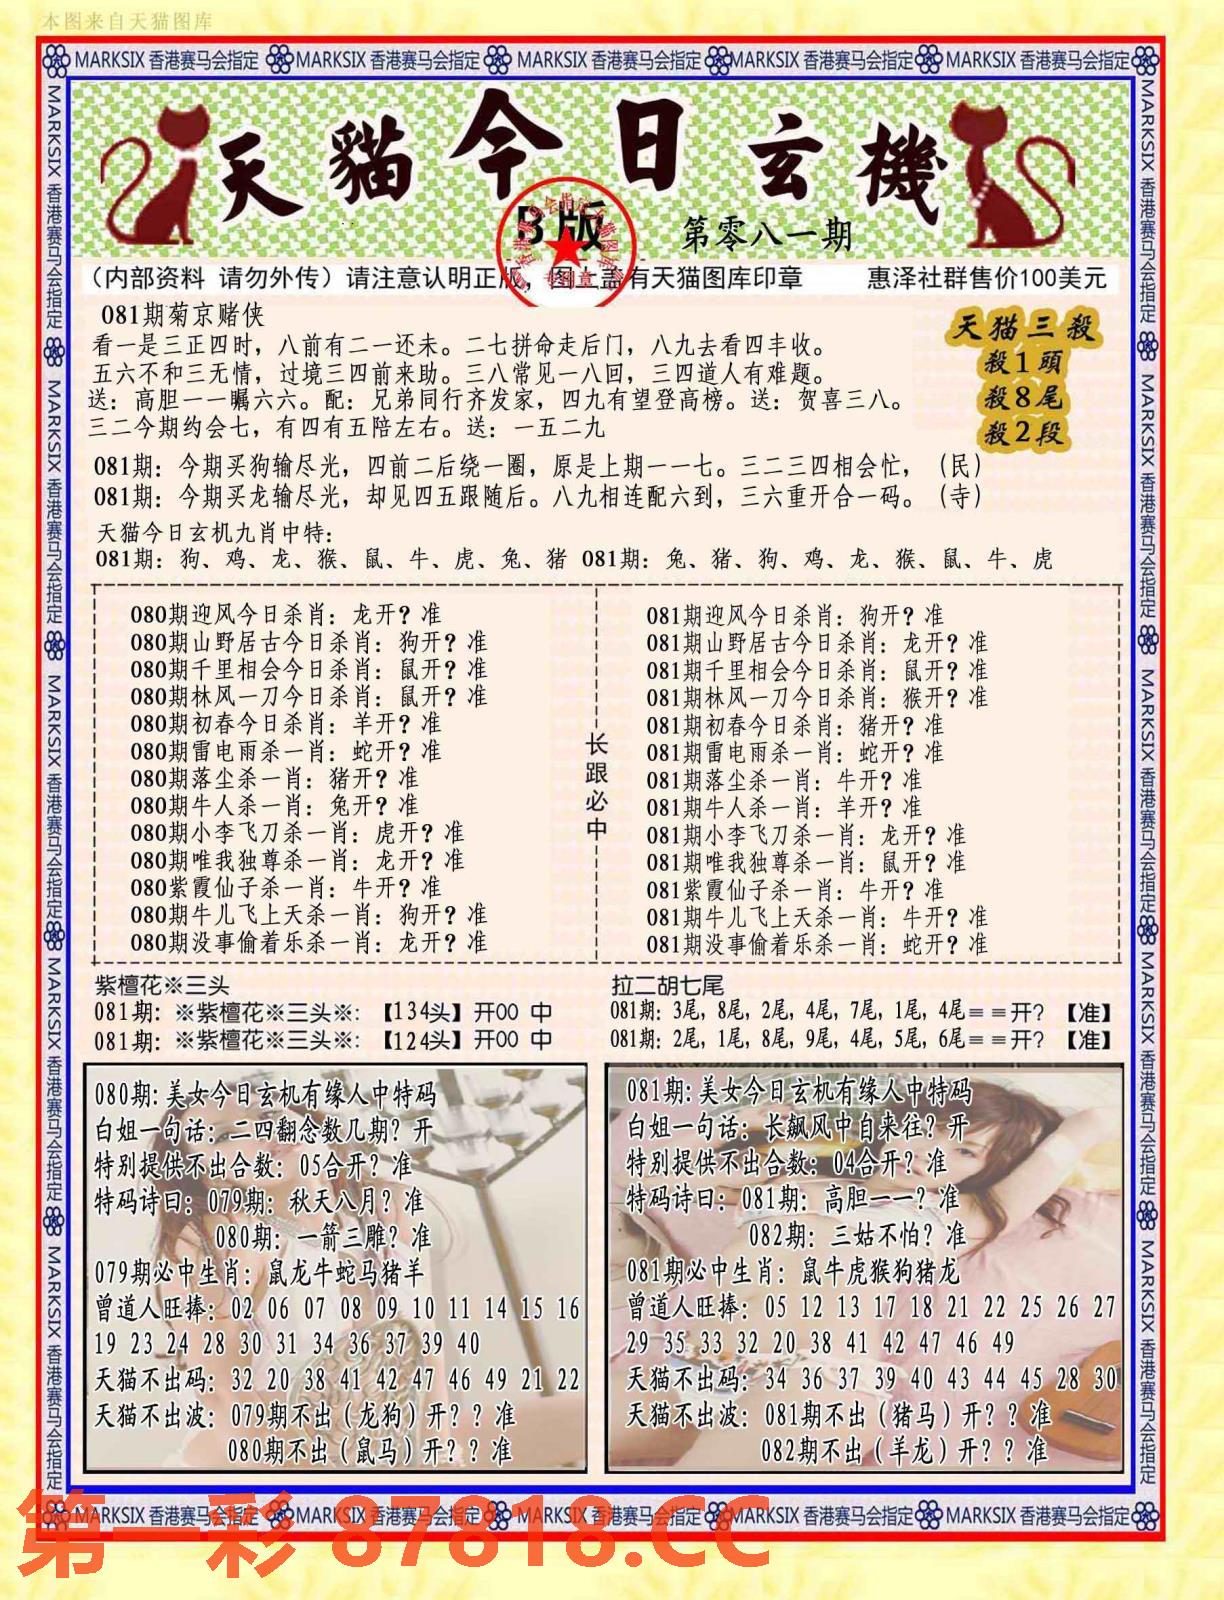 本图来自天猫图库
MARKSIX 香港赛马会指定 MARKSIX 香港赛马会指定 MARKSIX 香港赛马会指定 MARKSIX 香港赛马会指定 MARKSIX 香港赛马会指定
天貓今日玄機
B版
第零八一期
(内部资料 请勿外传)请注意认明正版,图上盖有天猫图库印章 惠泽社群售价100美元
081期菊京赌侠
看一是三正四时,八前有二一还未。二七拼命走后门,八九去看四丰收。
五六不和三无情,过境三四前来助。三八常见一八回,三四道人有难题。
送:高胆一一瞩六六。配:兄弟同行齐发家,四九有望登高榜。送:贺喜三八。
三二今期约会七,有四有五陪左右。送:一五二九
天猫三殺
殺1頭
殺8尾
殺2段
081期:今期买狗输尽光,四前二后绕一圈,原是上期一一七。三二三四相会忙,(民)
081期:今期买龙输尽光,却见四五跟随后。八九相连配六到,三六重开合一码。(寺)
天猫今日玄机九肖中特:
081期:狗、鸡、龙、猴、鼠、牛、虎、兔、猪 081期:兔、猪、狗、鸡、龙、猴、鼠、牛、虎
080期迎风今日杀肖:龙开?准
080期山野居古今日杀肖:狗开?准
080期千里相会今日杀肖:鼠开?准
080期林风一刀今日杀肖:鼠开?准
080期初春今日杀肖:羊开?准
080期雷电雨杀一肖:蛇开?准
080期落尘杀一肖:猪开?准
080期牛人杀一肖:兔开?准
080期小李飞刀杀一肖:虎开?准
080期唯我独尊杀一肖:龙开?准
080紫霞仙子杀一肖:牛开?准
080期牛儿飞上天杀一肖:狗开?准
080期没事偷着乐杀一肖:龙开?准
长跟必中
081期迎风今日杀肖:狗开?准
081期山野居古今日杀肖:龙开?准
081期千里相会今日杀肖:鼠开?准
081期林风一刀今日杀肖:猴开?准
081期初春今日杀肖:猪开?准
081期雷电雨杀一肖:蛇开?准
081期落尘杀一肖:牛开?准
081期牛人杀一肖:羊开?准
081期小李飞刀杀一肖:龙开?准
081期唯我独尊杀一肖:鼠开?准
081紫霞仙子杀一肖:牛开?准
081期牛儿飞上天杀一肖:牛开?准
081期没事偷着乐杀一肖:蛇开?准
紫檀花※三头
081期:※紫檀花※三头※:【134头】开00 中
081期:※紫檀花※三头※:【124头】开00 中
拉二胡七尾
081期:3尾,8尾,2尾,4尾,7尾,1尾,4尾==开?【准】
081期:2尾,1尾,8尾,9尾,4尾,5尾,6尾==开?【准】
080期:美女今日玄机有缘人中特码
白姐一句话:二四翻念数几期?开
特别提供不出合数:05合开?准
特码诗曰:079期:秋天八月?准
080期:一箭三雕?准
079期必中生肖:鼠龙牛蛇马猪羊
曾道人旺捧:02 06 07 08 09 10 11 14 15 16
19 23 24 28 30 31 34 36 37 39 40
天猫不出码:32 20 38 41 42 47 46 49 21 22
天猫不出波:079期不出(龙狗)开??准
080期不出(鼠马)开??准
081期:美女今日玄机有缘人中特码
白姐一句话:长飙风中自来往?开
特别提供不出合数:04合开?准
特码诗曰:081期:高胆一一?准
082期:三姑不怕?准
081期必中生肖:鼠牛虎猴狗猪龙
曾道人旺捧:05 12 13 17 18 21 22 25 26 27
29 35 33 32 20 38 41 42 47 46 49
天猫不出码:34 36 37 39 40 43 44 45 28 30
天猫不出波:081期不出(猪马)开??准
082期不出(羊龙)开??准
MARKSIX 香港赛马会指定 MARKSIX 香港赛马会指定 MARKSIX 香港赛马会指定 MARKSIX 香港赛马会指定 MARKSIX 香港赛马会指定
MARKSIX 香港赛马会指定 MARKSIX 香港赛马会指定 MARKSIX 香港赛马会指定 MARKSIX 香港赛马会指定 MARKSIX 香港赛马会指定
MARKSIX 香港赛马会指定 MARKSIX 香港赛马会指定 MARKSIX 香港赛马会指定 MARKSIX 香港赛马会指定 MARKSIX 香港赛马会指定
第一彩 87818.CC